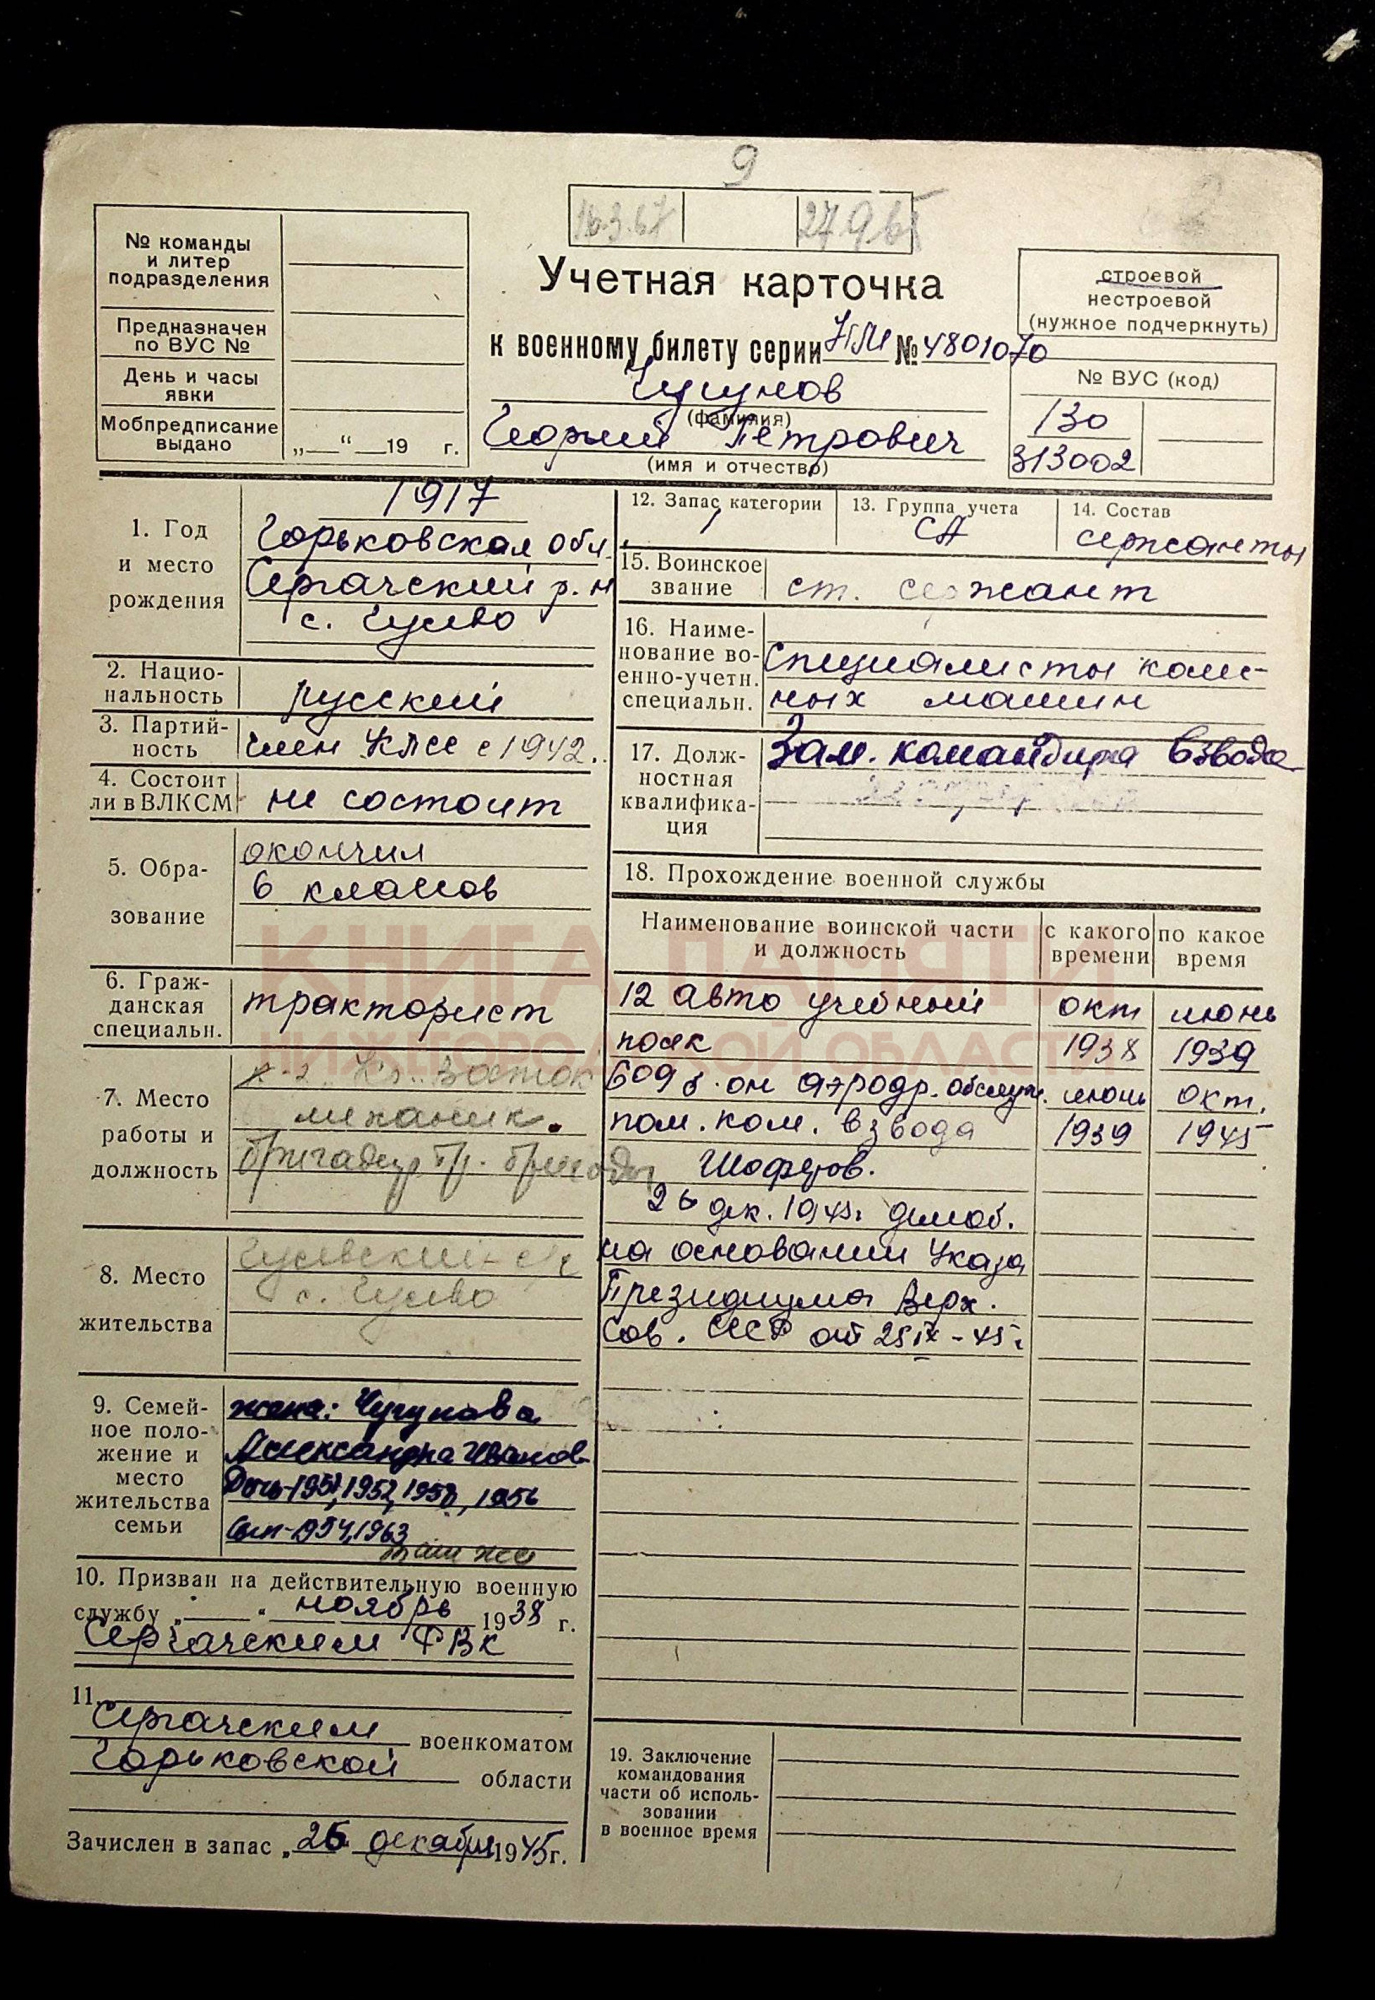 9
16.3.67
27.9.65
№ команды
и литер
подразделения
Предназначен
по ВУС №
День и часы
явки
Мобпредписание
выдано
„ “ 19 г.
Учетная карточка
к военному билету серии НМ № 4801070
Чугунов
(фамилия)
Георгий Петрович
(имя и отчество)
строевой
нестроевой
(нужное подчеркнуть)
№ ВУС (код)
130
313002
1. Год
и место
рождения
1917
Горьковская обл.
Сергачский р.н
с. Гусево
2. Нацио-
нальность
русский
3. Партий-
ность
член КПСС с 1942.
4. Состоит
ли в ВЛКСМ
не состоит
5. Обра-
зование
окончил
6 классов
6. Граж-
данская
специальн.
тракторист
7. Место
работы и
должность
Восток
механик.
бригадир тр. бригады
8. Место
жительства
Гусевский с/с
с. Гусево
9. Семей-
ное поло-
жение и
место
жительства
семьи
жена: Чугунова
Александра Иванов-
Дочь-1951, 1952, 1958, 1956
Сын-1954, 1963
там же
10. Призван на действительную военную
службу „ “ ноябрь 1938 г.
Сергачским РВК
11.
Сергачским военкоматом
Горьковской области
Зачислен в запас „26 декабря 1945 г.
12. Запас категории
1
13. Группа учета
СА
14. Состав
сержанты
15. Воинское
звание
ст. сержант
16. Наиме-
нование во-
енно-учетн.
специальн.
Специалисты колес-
ных машин
17. Долж-
ностная
квалифика-
ция
Зам. командира взвода
18. Прохождение военной службы
Наименование воинской части
и должность
с какого
времени
по какое
время
12 авто учебный окт июнь
полк 1938 1939
609 б-он аэродр. обслуж. июнь окт.
пом. ком. взвода 1939 1945
Шоферов.
26 дек. 1945г. демоб.
на основании Указа
Президиума Верх.
Сов. СССР от 25 IX-45г.
19. Заключение
командования
части об исполь-
зовании
в военное время
КНИГА ПАМЯТИ
НИЖЕГОРОДСКОЙ ОБЛАСТИ